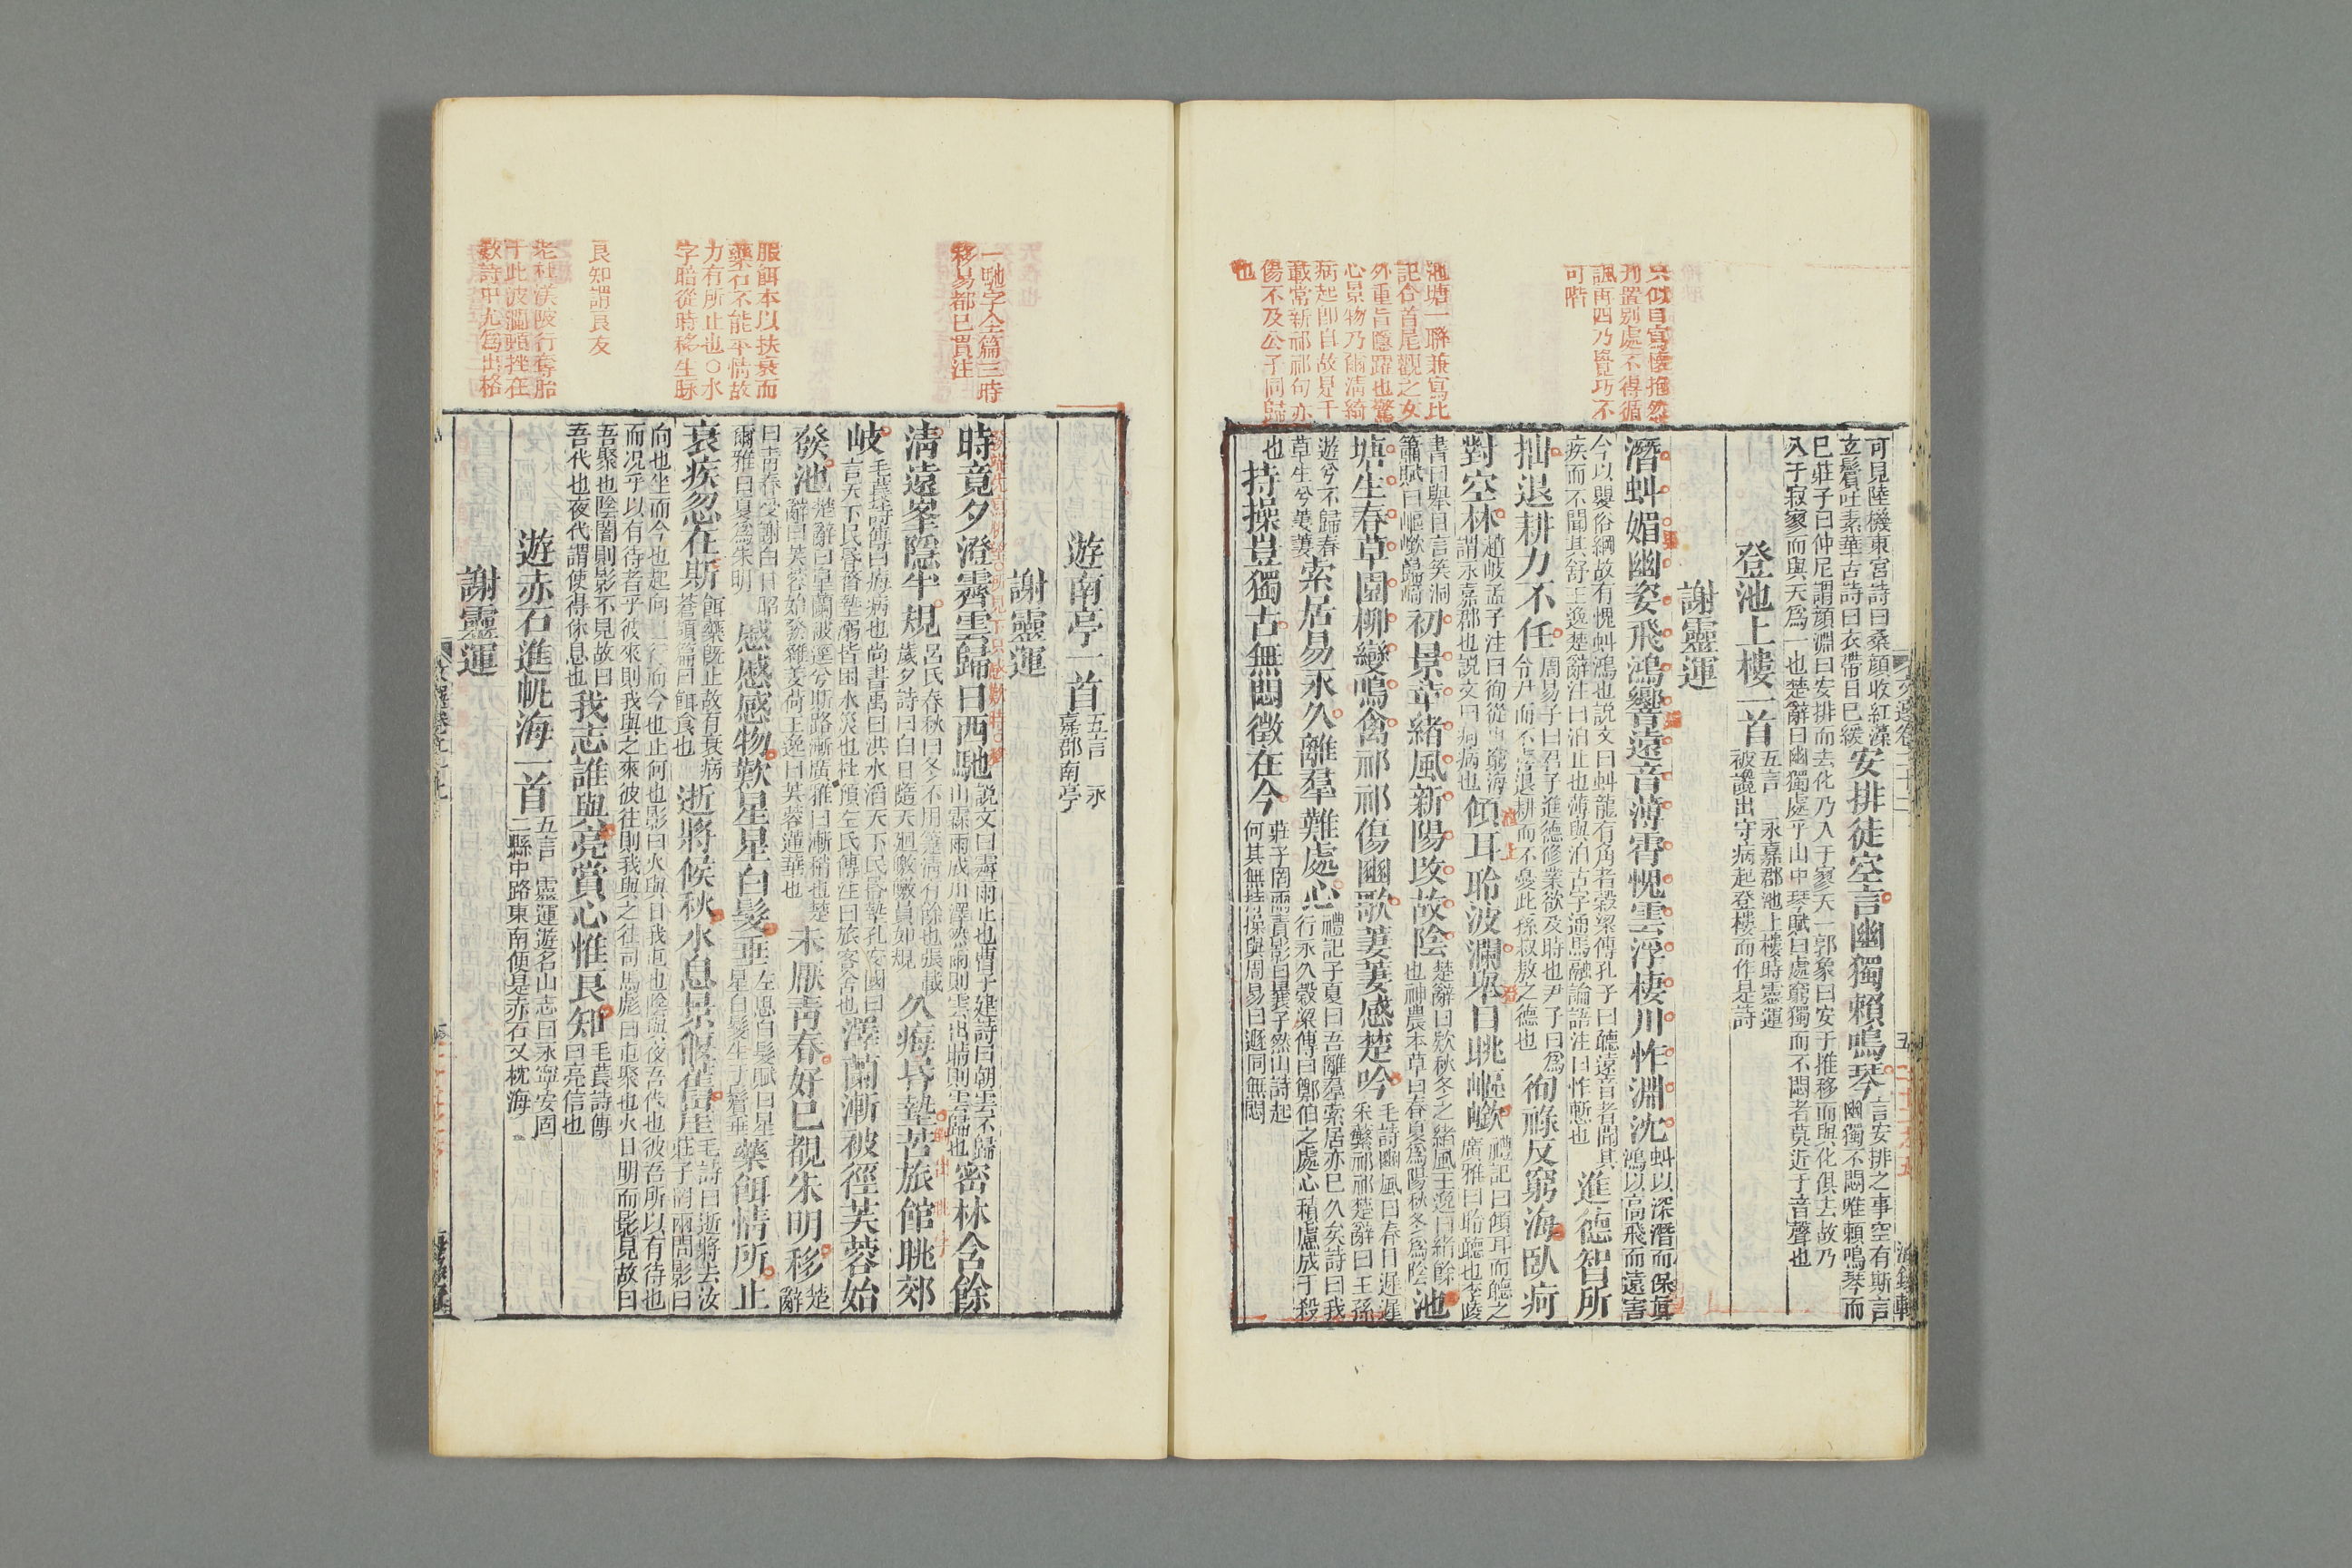 只似自寫懷抱然
刊置别處不得循
諷再四乃覺巧不
可階
池塘一聯兼寓比
託合首尾觀之文
外重旨隱躍也驚
心景物乃爾清綺
病起即目故是千
載常新祁祁句亦
傷不及公子同歸
也
可見陸機東宮詩曰柔顔收紅藻
玄鬢吐素華古詩曰衣帶日已緩
安排徒空言幽獨賴鳴琴
言安排之事空有斯言
幽獨不悶唯賴鳴琴而
已莊子曰仲尼謂顔淵曰安排而去化乃入于寥天一郭象曰安于推移而與化俱去故乃
入于寂寥而與天爲一也楚辭曰幽獨處乎山中琴賦曰處窮獨而不悶者莫近于音聲也
登池上樓一首
五言 永嘉郡池上樓時靈運
被譏出守病起登樓而作是詩
謝靈運
潛虯媚幽姿飛鴻響遠音薄霄愧雲浮棲川怍淵沈
虯以深潛而保眞
鴻以高飛而遠害
今以嬰俗網故有愧虯鴻也説文曰虯龍有角者穀梁傳孔子曰聽遠音者聞其
疾而不聞其舒王逸楚辭注曰泊止也薄與泊古字通馬融論語注曰怍慙也
進德智所
拙退耕力不任
周易子曰君子進德修業欲及時也尹子曰爲
令尹而不喜退耕而不憂此孫叔敖之德也
徇祿反窮海臥痾
對空林
趙岐孟子注曰徇從也窮海
謂永嘉郡也説文曰痾病也
傾耳聆波瀾舉目眺嶇嶔
禮記曰傾耳而聽之
廣雅曰聆聽也李陵
書曰舉目言笑洞
簫賦曰嶇嶔巋崎
初景革緒風新陽改故陰
楚辭曰欵秋冬之緒風王逸曰緒餘
也神農本草曰春夏爲陽秋冬爲陰
池
塘生春草園柳變鳴禽祁祁傷豳歌萋萋感楚吟
毛詩豳風曰春日遲遲
采蘩祁祁楚辭曰王孫
遊兮不歸春
草生兮萋萋
索居易永久離羣難處心
禮記子夏曰吾離羣索居亦巳久矣詩曰我
行永久穀梁傳曰鄭伯之處心積慮成于殺
也
持操豈獨古無悶徵在今
莊子罔兩責影曰曩子然山詩起
何其無持操與周易曰遯同無悶
一馳字全篇三時
移易都已貫注
服餌本以扶衰而
藥石不能平情故
力有所止也○水
字胎從時移生脉
良知謂良友
老杜渼陂行奪胎
于此波瀾頓挫在
數詩中尤爲出格
遊南亭一首
五言 永
嘉郡南亭
謝靈運
時竟夕澄霽雲歸日西馳
説文曰霽雨止也曹子建詩曰朝雲不歸
山霖雨成川澤然雨則雲出晴則雲歸也
密林含餘
清遠峯隱半規
呂氏春秋曰冬不用箑清有餘也張載
歲夕詩曰白日隨天迴皦皦員如規
久痗昏墊苦旅館眺郊
岐
毛萇詩傳曰痗病也尚書禹曰洪水滔天下民昏墊孔安國曰
言天下民昏瞀墊溺皆困水災也杜預左氏傳注曰旅客舍也
澤蘭漸被徑芙蓉始
發池
楚辭曰皋蘭被逕兮斯路漸廣雅曰漸稍也楚
辭曰芙蓉始發雜芰荷王逸曰芙蓉蓮華也
未厭青春好已覩朱明移
楚
辭
曰青春受謝白日昭
爾雅曰夏爲朱明
慼慼感物歎星星白髮垂
左思白髮賦曰星
星白髮生于鬢垂
藥餌情所止
衰疾忽在斯
餌藥既止故有衰病
蒼頡篇曰餌食也
逝將候秋水息景偃舊崖
毛詩曰逝將去汝
莊子罔兩問影曰
向也坐而今也起向也行而今也止何也影曰火與日我屯也陰與夜吾代也彼吾所以有待也
而况乎以有待者乎彼來則我與之來彼往則我與之往司馬彪曰屯聚也火日明而影見故曰
吾聚也陰闇則影不見故曰
吾代也夜代謂使得休息也
我志誰與亮賞心惟良知
毛萇詩傳
曰亮信也
遊赤石進帆海一首
五言 靈運遊名山志曰永寧安固
二縣中路東南便是赤石又枕海
謝靈運